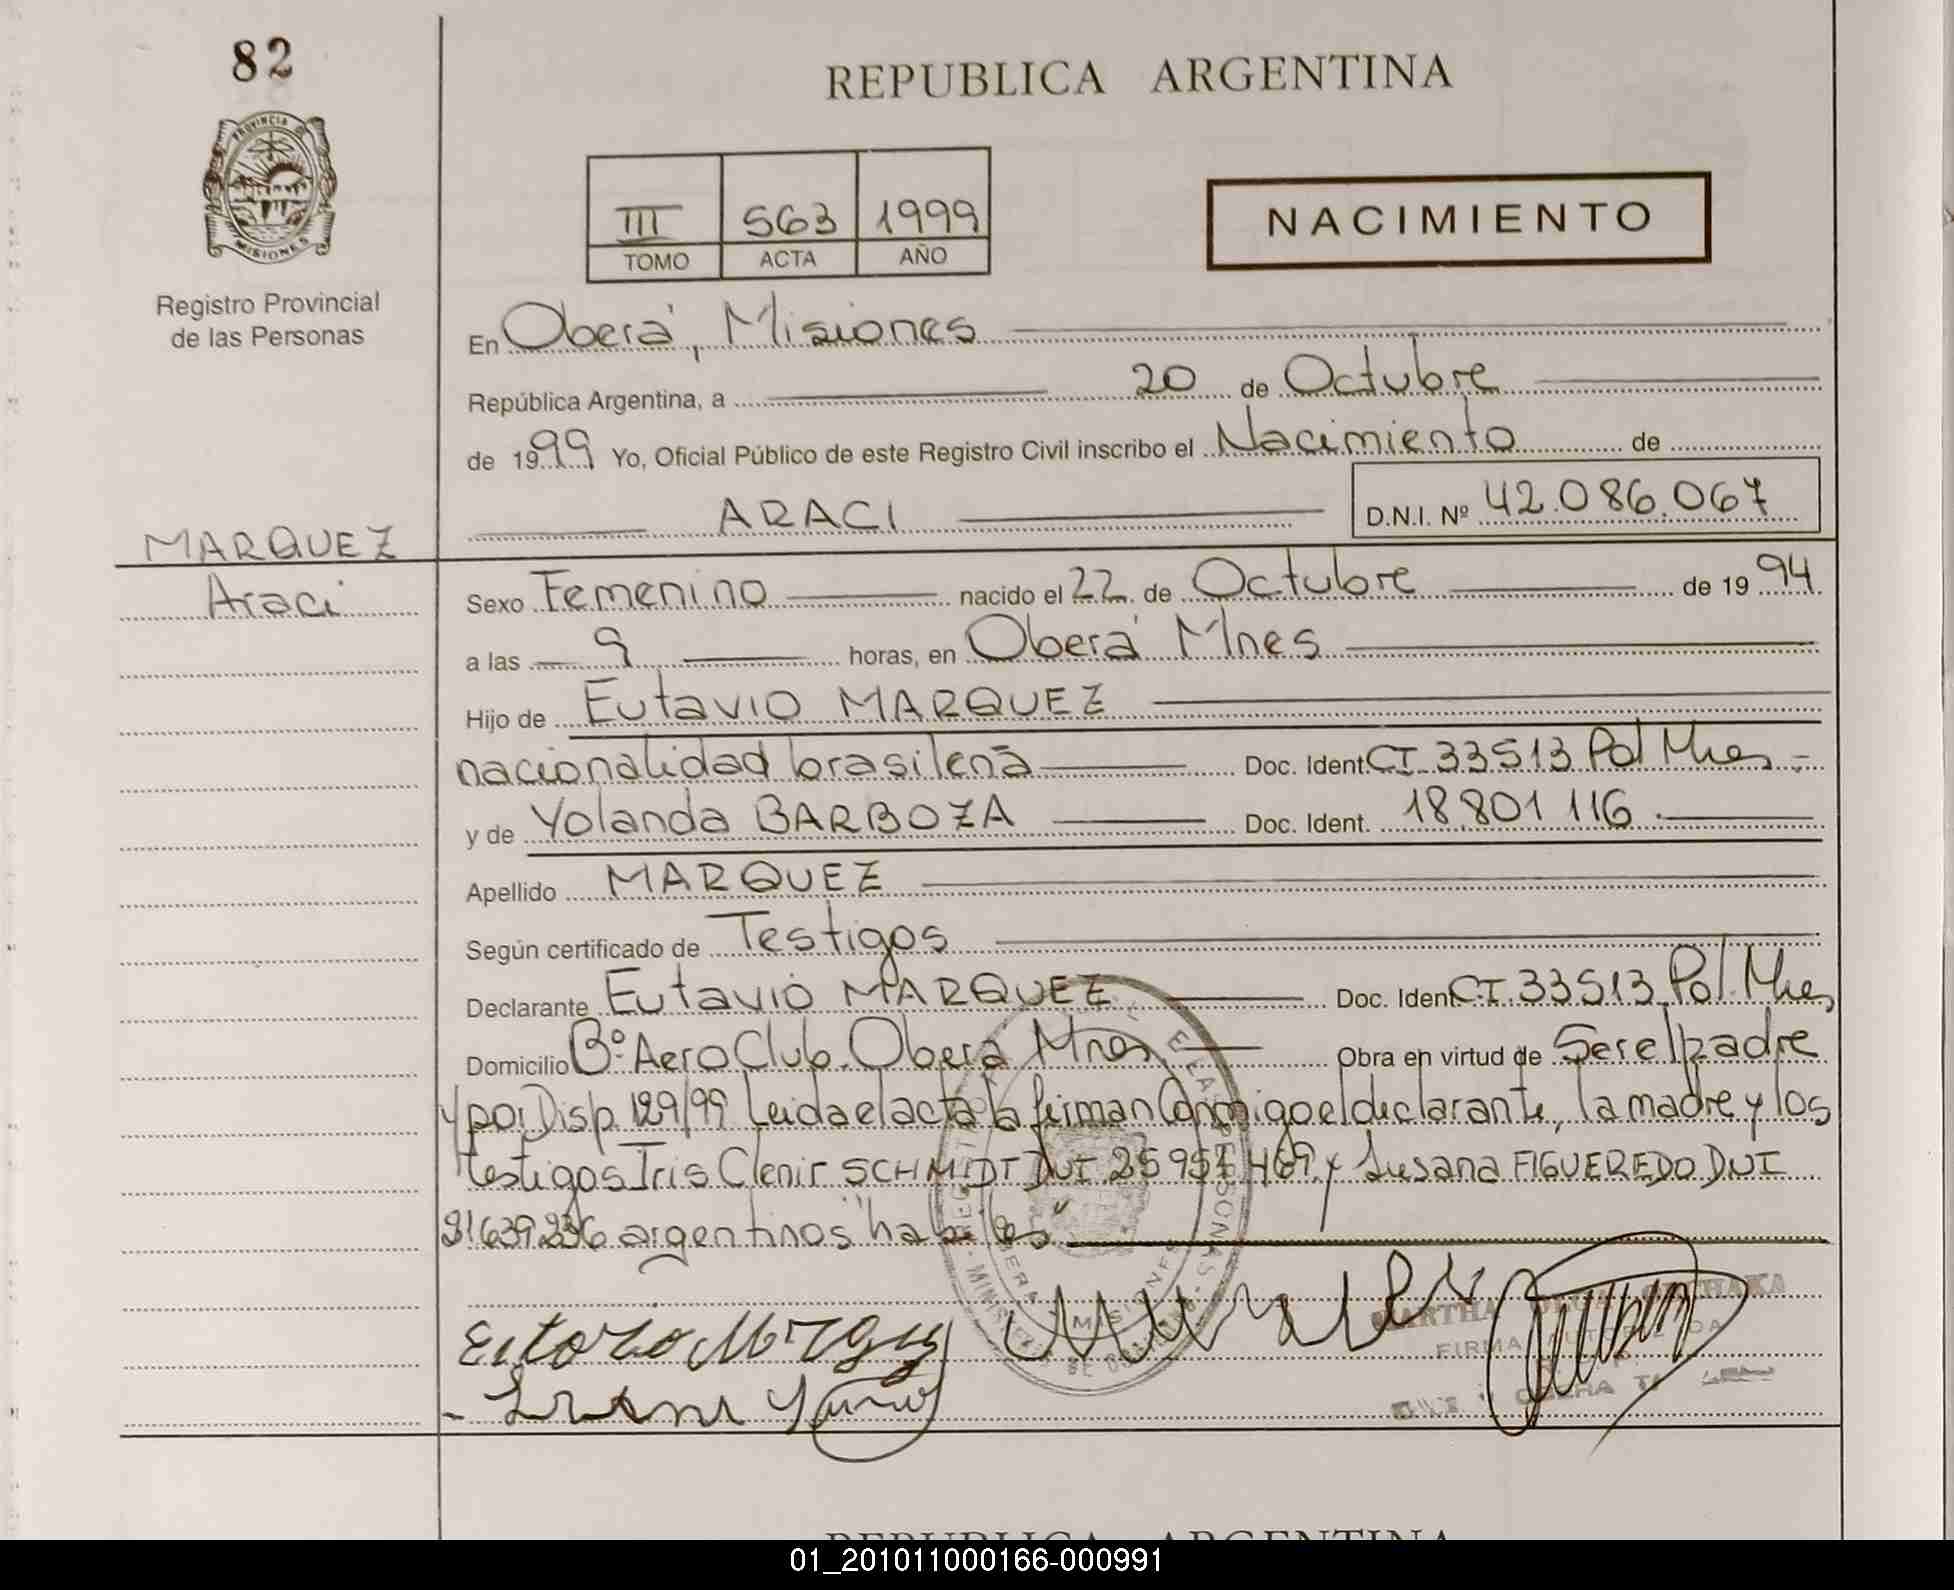 82
REPUBLICA ARGENTINA
PROVINCIA
MISIONES
Registro Provincial
de las Personas
III 563 1999
TOMO ACTA AÑO
NACIMIENTO
En Oberá, Misiones
República Argentina, a 20 de Octubre
de 1999 Yo, Oficial Público de este Registro Civil inscribo el Nacimiento de
ARACI D.N.I. Nº 42.086.067
MARQUEZ
Araci
Sexo Femenino nacido el 22 de Octubre de 1994
a las 9 horas, en Oberá Mnes
Hijo de Eutavio MARQUEZ
nacionalidad brasilena Doc. Ident. CI 33513 Pol Mnes
y de Yolanda BARBOZA Doc. Ident. 18.801 116
Apellido MARQUEZ
Según certificado de Testigos
Declarante Eutavio MARQUEZ Doc. Ident. CI 33513 Pol. Mnes
Domicilio Bº Aero Club. Oberá Mnes Obra en virtud de Ser el padre
y por Disp. 129/99 Leida el acta la firman Conmigo el declarante, la madre y los
testigos Iris Clenir SCHMIDT DNI 25957469 y Susana FIGUEREDO DNI
21639236 argentinos "habiles"
MARTHA OLGA
FIRMA AUTORIZADA
01_201011000166-000991